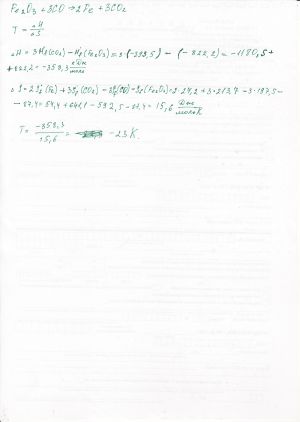 Fe₂O₃ + 3CO → 2Fe + 3CO₂
T = ΔH/ΔS
ΔH = 3H_f(CO₂) - H_f(Fe₂O₃) = 3·(-393,5) - (-822,2) = -1180,5 +
+ 822,2 = -358,3 кДж/моль
ΔS = 2S_f(Fe) + 3S_f(CO₂) - 3S_f(CO) - S_f(Fe₂O₃) = 2·27,2 + 3·213,7 - 3·197,5 -
- 87,4 = 54,4 + 641,1 - 592,5 - 87,4 = 15,6 Дж/моль·К
T = -358,3/15,6 = -23 К.